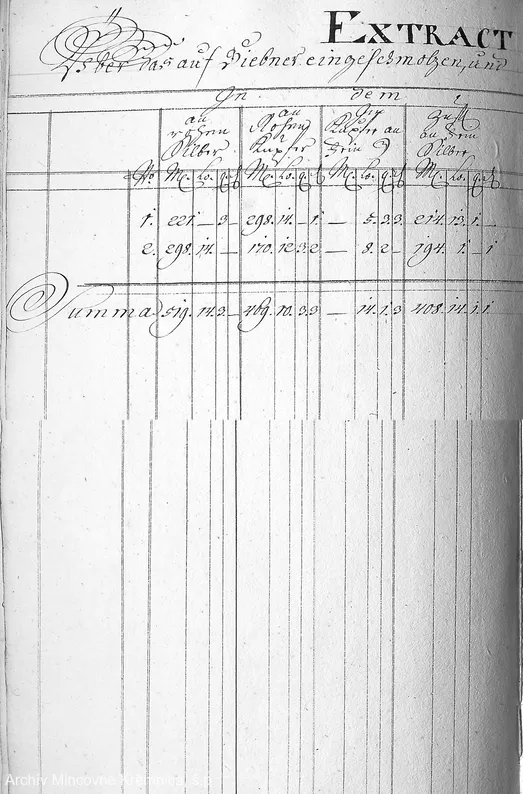 EXTRACT
Über das auf Siebner eingeschmolzen, und
In dem
an rohem Silber an Rohem Kupfer Kupfer an dem
an dem Silber
No. M. Lo. q. d M. Lo. q. d M. Lo. q. d M. Lo. q. d
1. 221. — 3 — 298. 14. — 1. — 5. 3. 3 214. 13. 1. —
2. 298. 14. — — 170. 12. 3. 2 — 8. 2 — 194. 1. — 1
Summa 519. 14. 3 — 469. 10. 3. 3 — 14. 1. 3 408. 14. 1. 1
Archív Mincovne Kremnica, š.p.